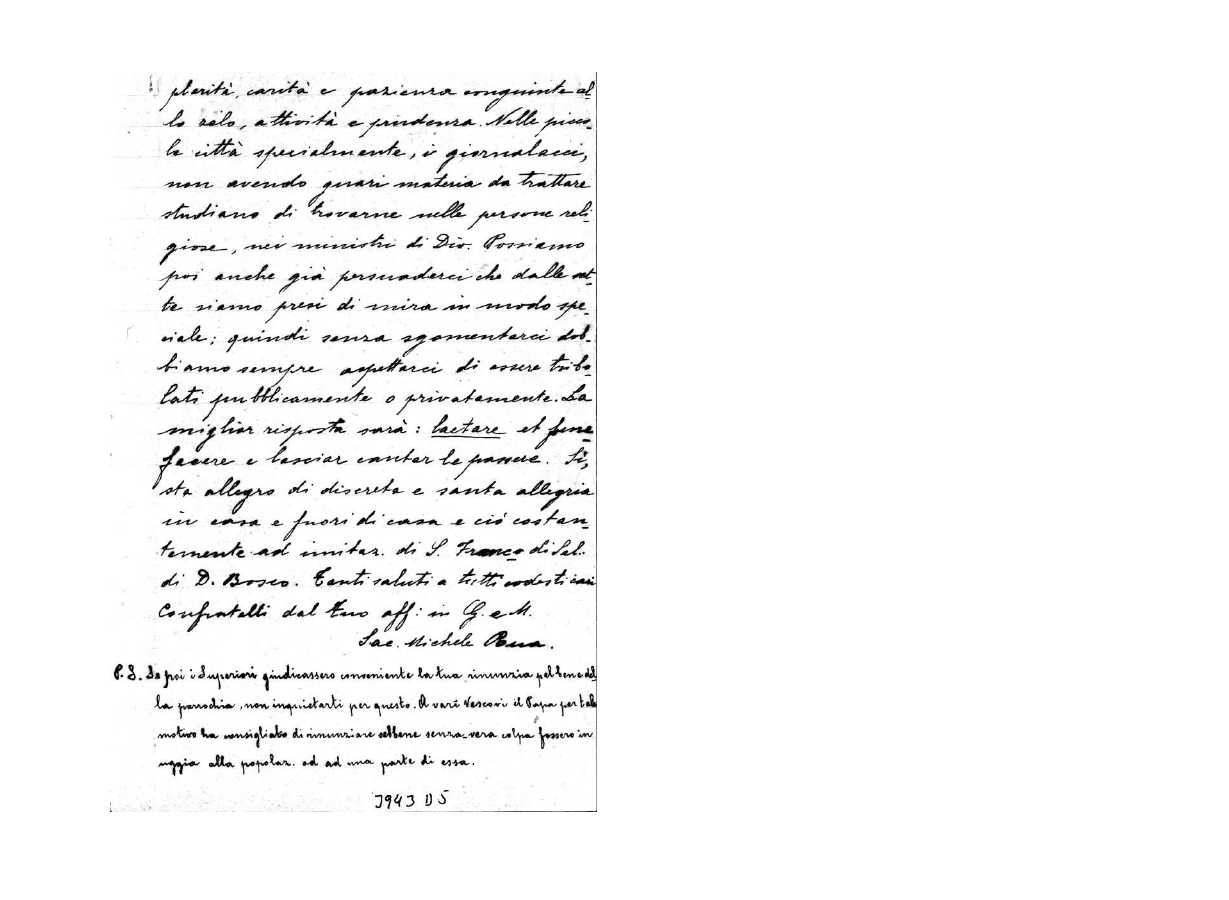 plarità, carità e pazienza congiunte al-
lo zelo, attività e prudenza. Nelle picco-
le città specialmente, i giornalacci,
non avendo guari materia da trattare
studiano di trovarne nelle persone reli-
giose, nei ministri di Dio. Possiamo
poi anche già persuaderci che dalle set-
te siamo presi di mira in modo spe-
ciale; quindi senza sgomentarci dob-
biamo sempre aspettarci di essere tribo-
lati pubblicamente o privatamente. La
miglior risposta sarà: laetare et bene
facere e lasciar cantar le passere. Sì,
sta allegro di discreta e santa allegria
in casa e fuori di casa e ciò costan-
temente ad imitaz. di S. Franco di Sal.
di D. Bosco. Tanti saluti a tutti codesti cari
Confratelli dal tuo aff: in G. e M.
Sac. Michele Rua.
P. S. Se poi i Superiori giudicassero conveniente la tua rinunzia pel bene del-
la parrochia, non inquietarti per questo. A varî Vescovi il Papa per tale
motivo ha consigliato di rinunziare sebbene senza vera colpa fossero in
uggia alla popolaz. od ad una parte di essa.
3943 D5